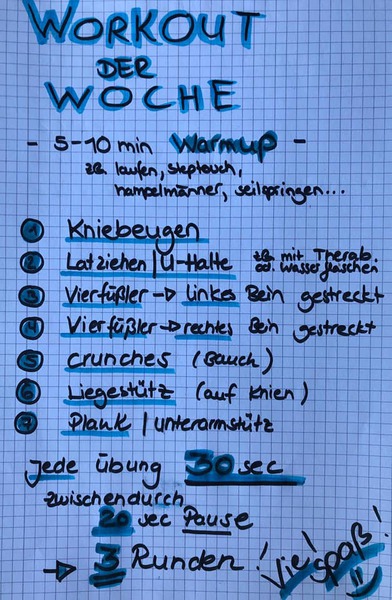 WORKOUT
DER
WOCHE
- 5-10 min Warmup -
zB. laufen, steptouch,
hampelmänner, seilspringen...
1 Kniebeugen
2 Latziehen | U-Halte zB. mit Therab.
od. wasserflaschen
3 Vierfüßler → linkes Bein gestreckt
4 Vierfüßler → rechtes Bein gestreckt
5 crunches (Bauch)
6 Liegestütz (auf Knien)
7 Plank | unterarmstütz
Jede übung 30 sec
zwischendurch
20 sec Pause
→ 3 Runden!
Viel spaß!